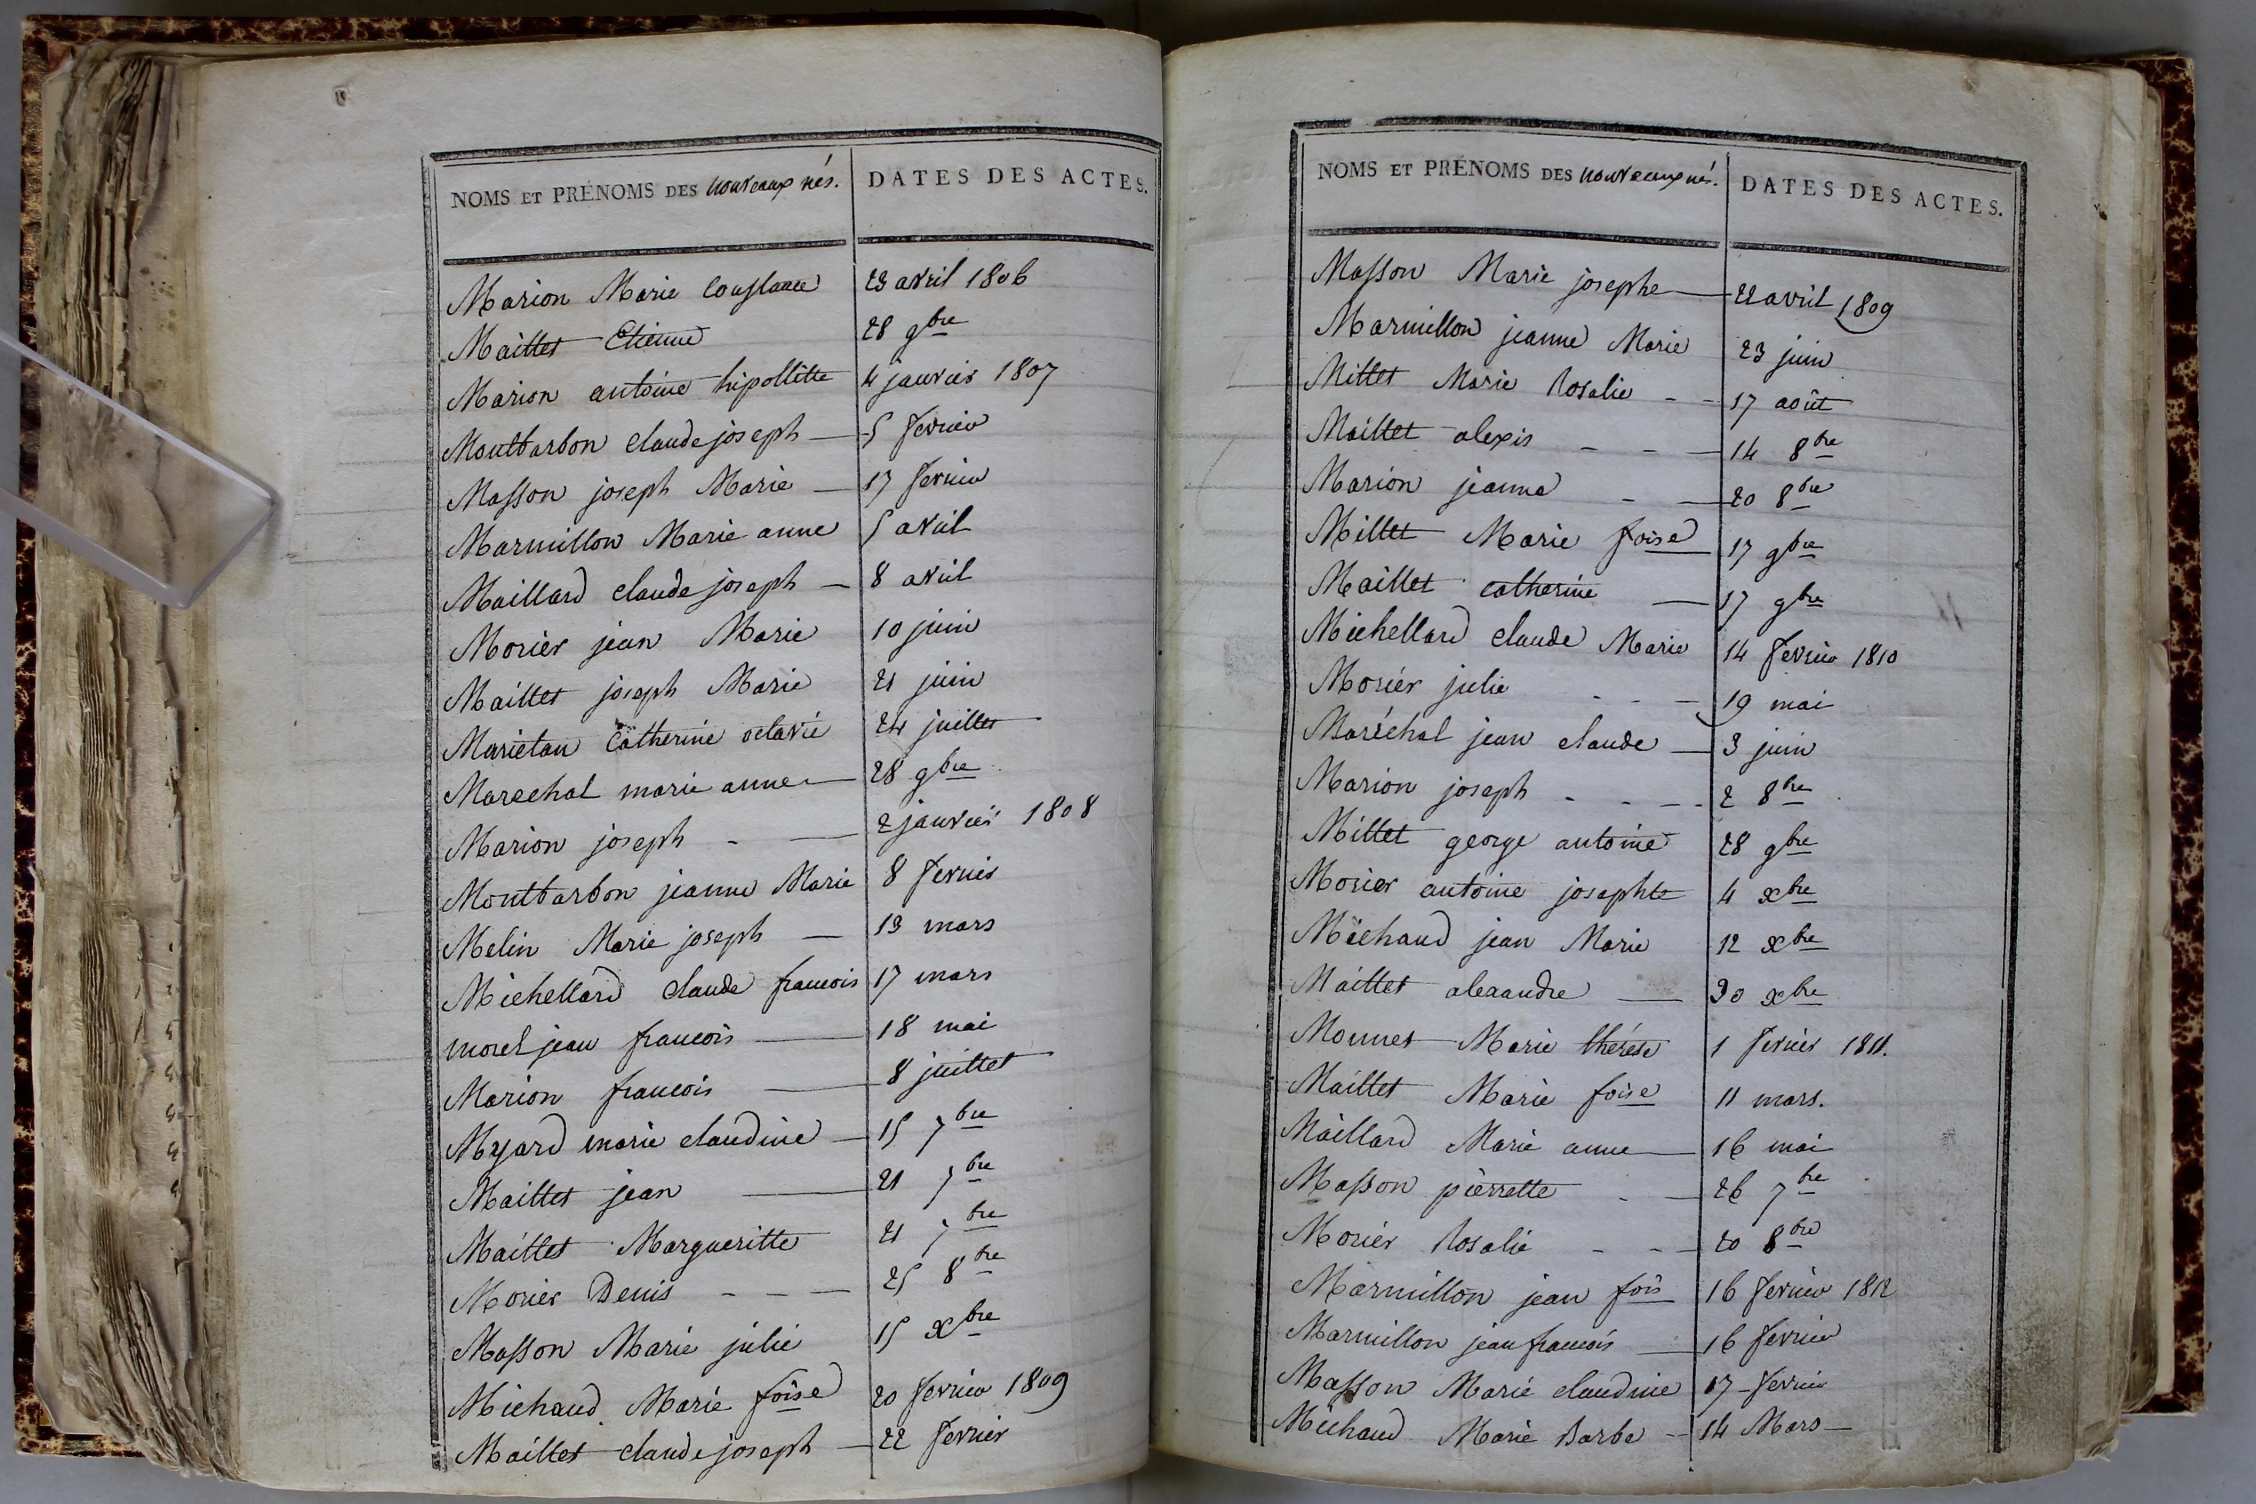 NOMS ET PRÉNOMS DES nouveaux nés. DATES DES ACTES.
Marion Marie Constance 23 avril 1806
Maillet Etienne 28 9bre
Marion antoine hipollitte 4 janvier 1807
Montbarbon claude joseph 5 fevrier
Masson joseph Marie 17 fevrier
Marmillon Marie anne 5 avril
Maillard claude joseph 8 avril
Morier jean Marie 10 juin
Maillet joseph Marie 21 juin
Marietan Catherine octavie 24 juillet
Marechal marie anne 28 9bre
Marion joseph 2 janvier 1808
Montbarbon jeanne Marie 8 fevrier
Melin Marie joseph 13 mars
Michellard Claude francois 17 mars
morel jean francois 18 mai
Marion francois 8 juillet
Myard marie claudine 15 7bre
Maillet jean 21 7bre
Maillet Margueritte 21 7bre
Morier Denis 25 8bre
Masson Marie julie 15 xbre
Michaud Marie foise 20 fevrier 1809
Maillet claude joseph 22 fevrier
NOMS ET PRÉNOMS DES nouveaux nés. DATES DES ACTES.
Masson Marie josephe 22 avril 1809
Marmillon jeanne Marie 23 juin
Millet Marie Rosalie 17 août
Maillet alexis 14 8bre
Marion jeanne 20 8bre
Millet Marie foise 17 9bre
Maillet catherine 17 9bre
Michellard claude Marie 14 fevrier 1810
Morier julie 19 mai
Maréchal jean claude 3 juin
Marion joseph 2 8bre
Millet george antoine 28 9bre
Morier antoine josephte 4 xbre
Michaud jean Marie 12 xbre
Maillet alexandre 30 xbre
Monnet Marie thérése 1 fevrier 1811.
Maillet Marie foise 11 mars.
Maillard Marie anne 16 mai
Masson pierrette 26 7bre
Morier Rosalie 20 8bre
Marmillon jean fois 16 fevrier 1812
Marmillon jean francois 16 fevrier
Masson Marie claudine 17 fevrier
Michaud Marie Barbe 14 Mars